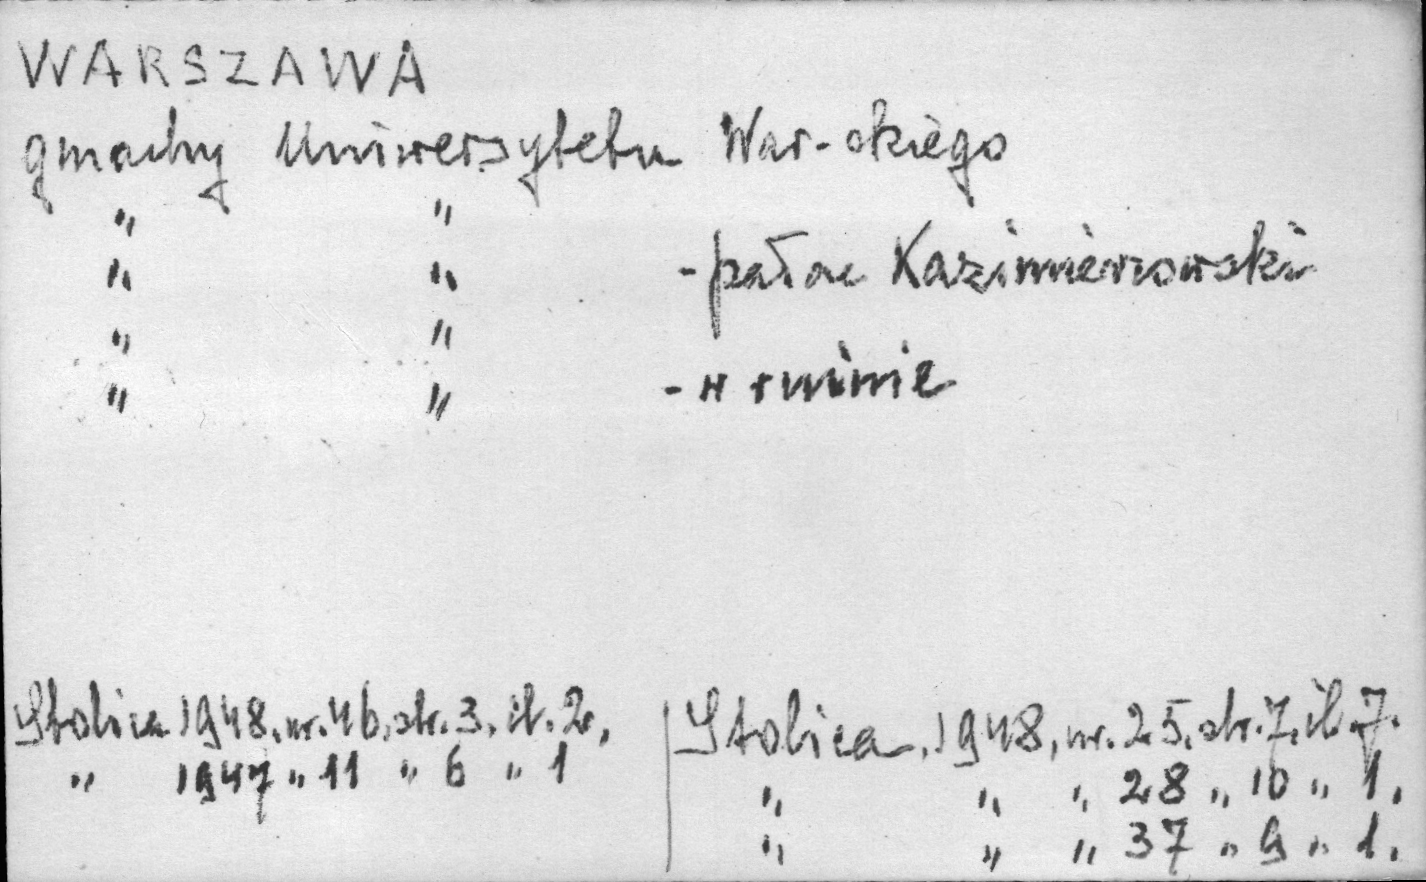 WARSZAWA
gmachy Uniwersytetu War-skiego
" "
" " - pałac Kazimierzowski
" "
" " - w ruinie
Stolica 1948, nr. 46, str. 3, il. 2,
" 1947 " 11 " 6 " 1
Stolica, 1948, nr. 25, str. 7, il. 7.
" " " 28 " 10 " 1,
" " " 37 " 9 " 1.